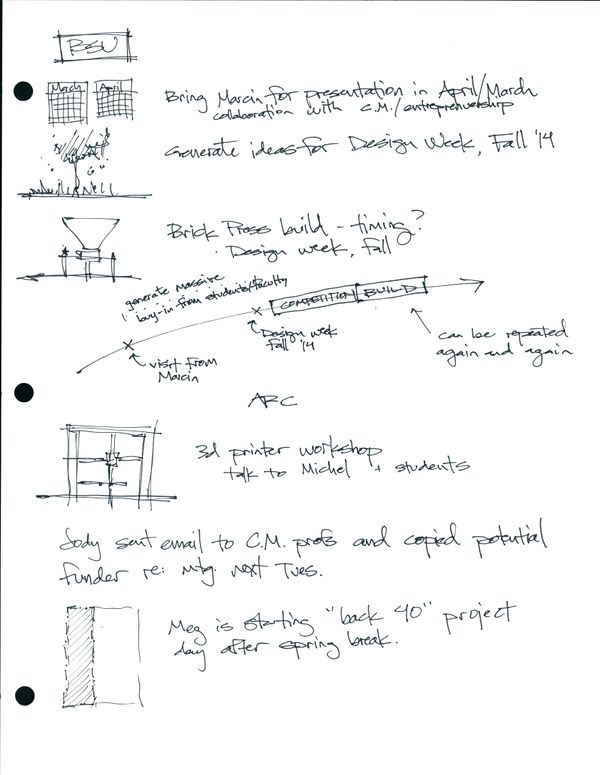 BSU
March April
Bring Marcin for presentation in April/March
collaboration with C.M./entreprenuership
Generate ideas for Design Week, Fall '14
Brick Press build - timing?
· Design week, Fall
generate massive
buy-in from students/faculty
COMPETITION BUILD
Design week
Fall '14
visit from
Marcin
can be repeated
again and again
ARC
3d printer workshop
talk to Michel + students
Jody sent email to C.M. profs and copied potential
funder re: mtg. next Tues.
Meg is starting "back 40" project
day after spring break.